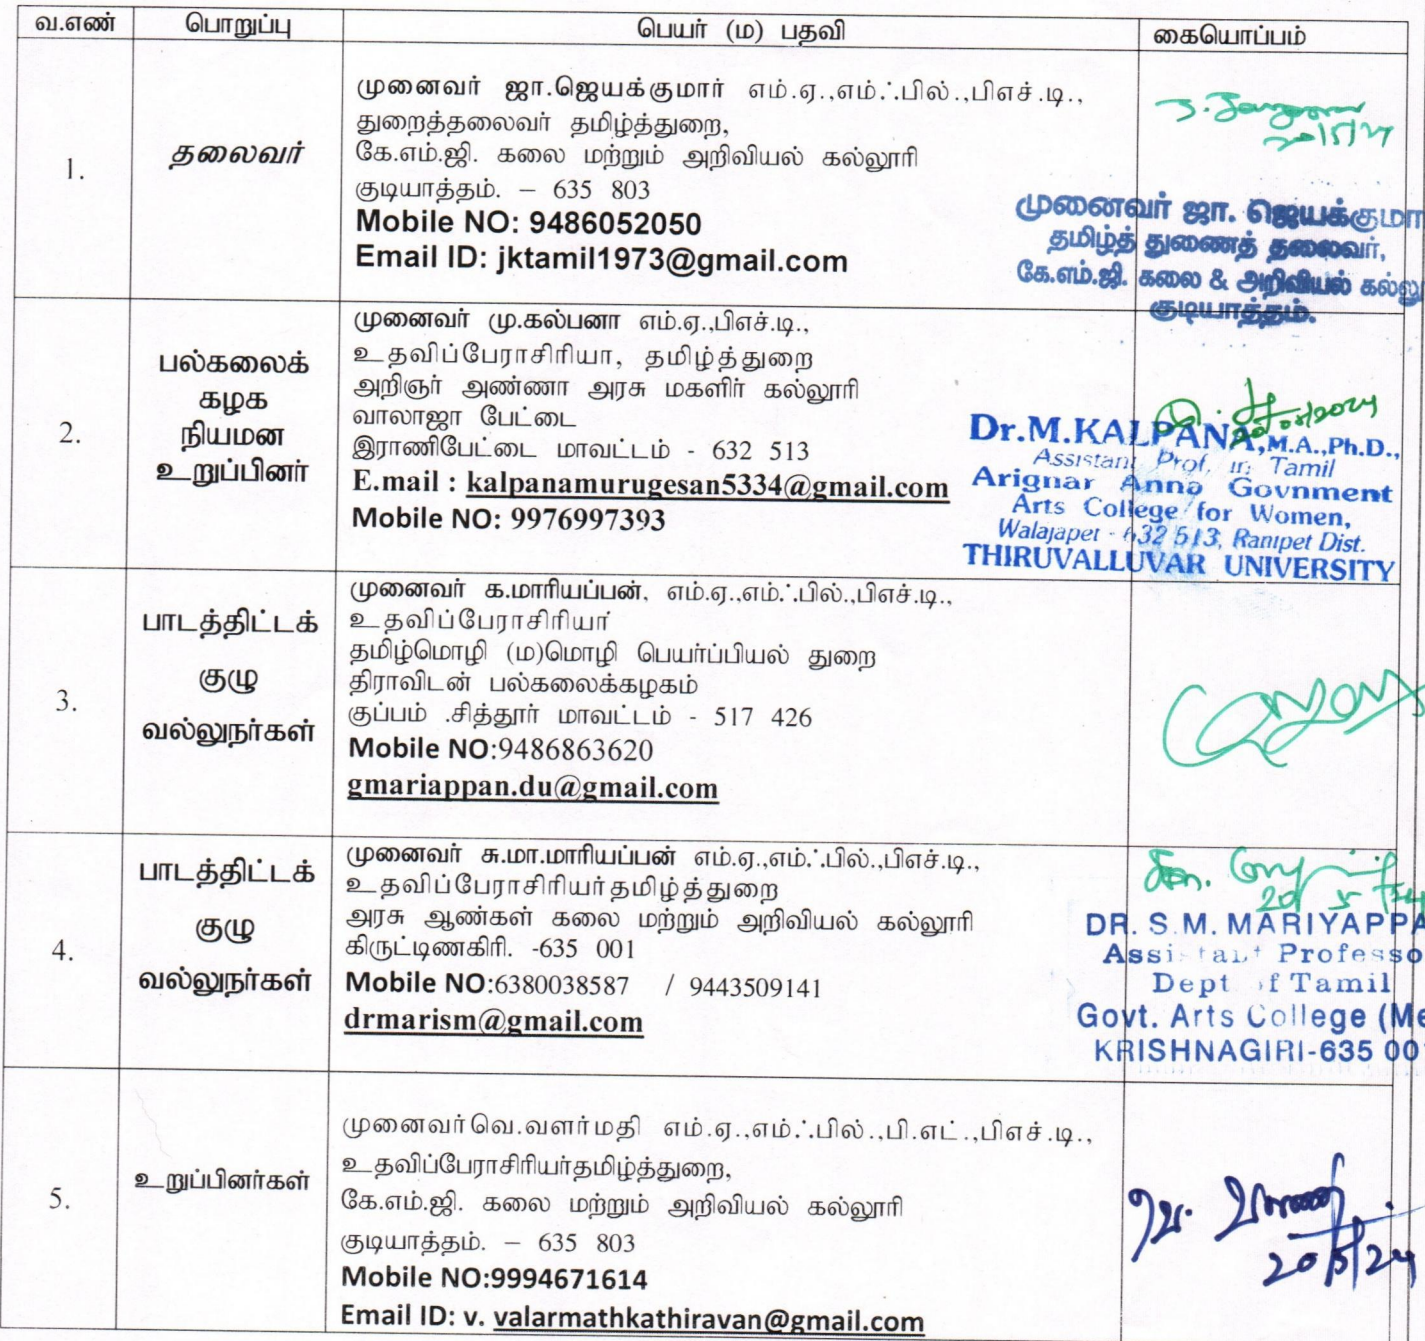 வ.எண் பொறுப்பு பெயர் (ம) பதவி கையொப்பம்
1.
தலைவர்
முனைவர் ஜா.ஜெயக்குமார் எம்.ஏ.,எம்.ஃபில்.,பிஎச்.டி.,
துறைத்தலைவர் தமிழ்த்துறை,
கே.எம்.ஜி. கலை மற்றும் அறிவியல் கல்லூரி
குடியாத்தம். – 635 803
Mobile NO: 9486052050
Email ID: jktamil1973@gmail.com
முனைவர் ஜா. ஜெயக்குமா
தமிழ்த் துணைத் தலைவர்,
கே.எம்.ஜி. கலை & அறிவியல் கல்லூ
குடியாத்தம்.
2.
பல்கலைக்
கழக
நியமன
உறுப்பினர்
முனைவர் மு.கல்பனா எம்.ஏ.,பிஎச்.டி.,
உதவிப்பேராசிரியா, தமிழ்த்துறை
அறிஞர் அண்ணா அரசு மகளிர் கல்லூரி
வாலாஜா பேட்டை
இராணிபேட்டை மாவட்டம் - 632 513
E.mail : kalpanamurugesan5334@gmail.com
Mobile NO: 9976997393
Dr.M.KALPANA,M.A.,Ph.D.,
Assistant Prof. in Tamil
Arignar Anna Govnment
Arts College for Women,
Walajapet - 632 513, Ranipet Dist.
THIRUVALLUVAR UNIVERSITY
3.
பாடத்திட்டக்
குழு
வல்லுநர்கள்
முனைவர் க.மாரியப்பன், எம்.ஏ.,எம்.ஃபில்.,பிஎச்.டி.,
உதவிப்பேராசிரியர்
தமிழ்மொழி (ம)மொழி பெயர்ப்பியல் துறை
திராவிடன் பல்கலைக்கழகம்
குப்பம் .சித்தூர் மாவட்டம் - 517 426
Mobile NO:9486863620
gmariappan.du@gmail.com
4.
பாடத்திட்டக்
குழு
வல்லுநர்கள்
முனைவர் சு.மா.மாரியப்பன் எம்.ஏ.,எம்.ஃபில்.,பிஎச்.டி.,
உதவிப்பேராசிரியர்தமிழ்த்துறை
அரசு ஆண்கள் கலை மற்றும் அறிவியல் கல்லூரி
கிருட்டிணகிரி. -635 001
Mobile NO:6380038587 / 9443509141
drmarism@gmail.com
20 5
DR. S.M. MARIYAPPA
Assistant Professo
Dept of Tamil
Govt. Arts College (Me
KRISHNAGIRI-635 00
5.
உறுப்பினர்கள்
முனைவர்வெ.வளர்மதி எம்.ஏ.,எம்.ஃபில்.,பி.எட்.,பிஎச்.டி.,
உதவிப்பேராசிரியர்தமிழ்த்துறை,
கே.எம்.ஜி. கலை மற்றும் அறிவியல் கல்லூரி
குடியாத்தம். – 635 803
Mobile NO:9994671614
Email ID: v. valarmathkathiravan@gmail.com
20/5/24